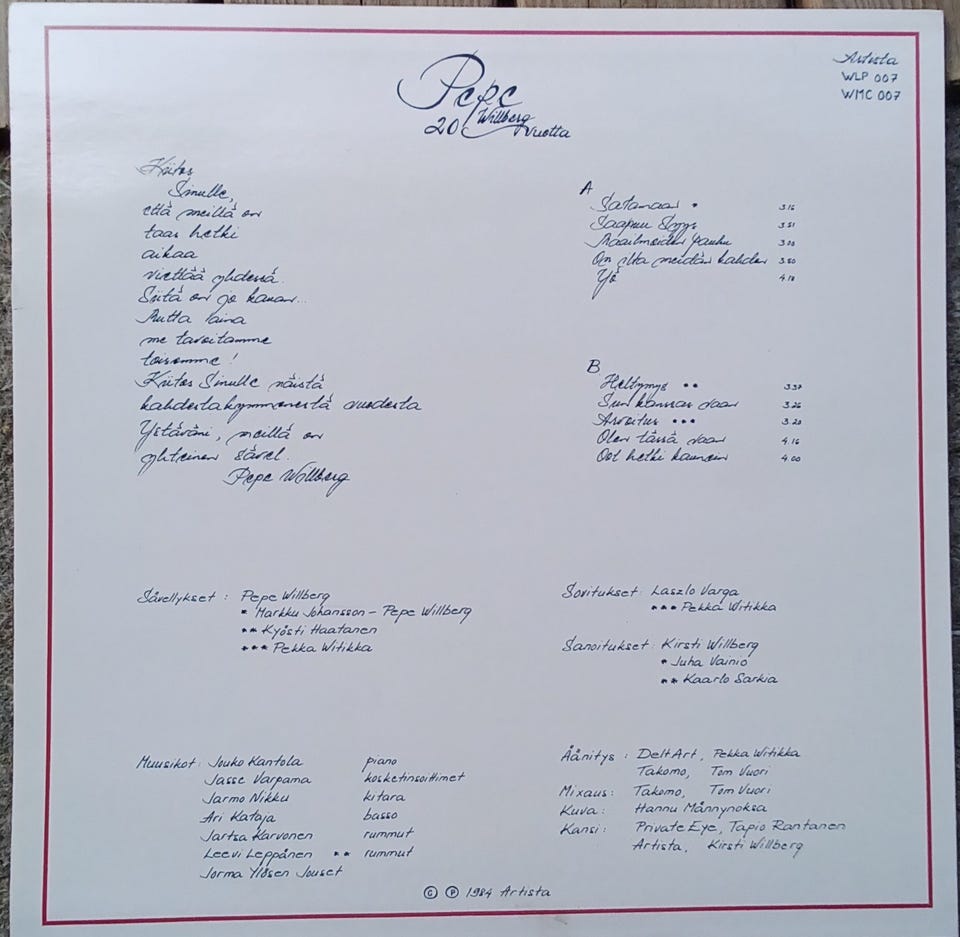 Pepe
Willberg
20 vuotta
Artista
WLP 007
WMC 007
Kiitos
Sinulle,
että meillä on
taas hetki
aikaa
viettää yhdessä.
Siitä on jo kauan...
Mutta aina
me tavoitamme
toisemme!
Kiitos Sinulle näistä
kahdestakymmenestä vuodesta
Ystäväni, meillä on
yhteinen sävel.
Pepe Willberg
A
Satamaan * 3.16
Saapuu Syys 3.51
Maailmoiden pauhu 3.00
On ilta meidän kahden 3.50
Yö 4.18
B
Heltymys ** 3.37
Sun kanssas vaan 3.26
Arvoitus *** 3.20
Olen tässä vaan 4.16
Oot hetki kaunein 4.00
Sävellykset: Pepe Willberg
* Markku Johansson - Pepe Willberg
** Kyösti Haatanen
*** Pekka Witikka
Sovitukset: Laszlo Varga
*** Pekka Witikka
Sanoitukset: Kirsti Willberg
* Juha Vainio
** Kaarlo Sarkia
Muusikot: Jouko Kantola piano
Jasse Varpama kosketinsoittimet
Jarmo Nikku kitara
Ari Kataja basso
Jartsa Karvonen rummut
Leevi Leppänen ** rummut
Jorma Ylösen Jouset
Äänitys: DeltArt, Pekka Witikka
Takomo, Tom Vuori
Mixaus: Takomo, Tom Vuori
Kuva: Hannu Männynoksa
Kansi: Private Eye, Tapio Rantanen
Artista, Kirsti Willberg
© ℗ 1984 Artista